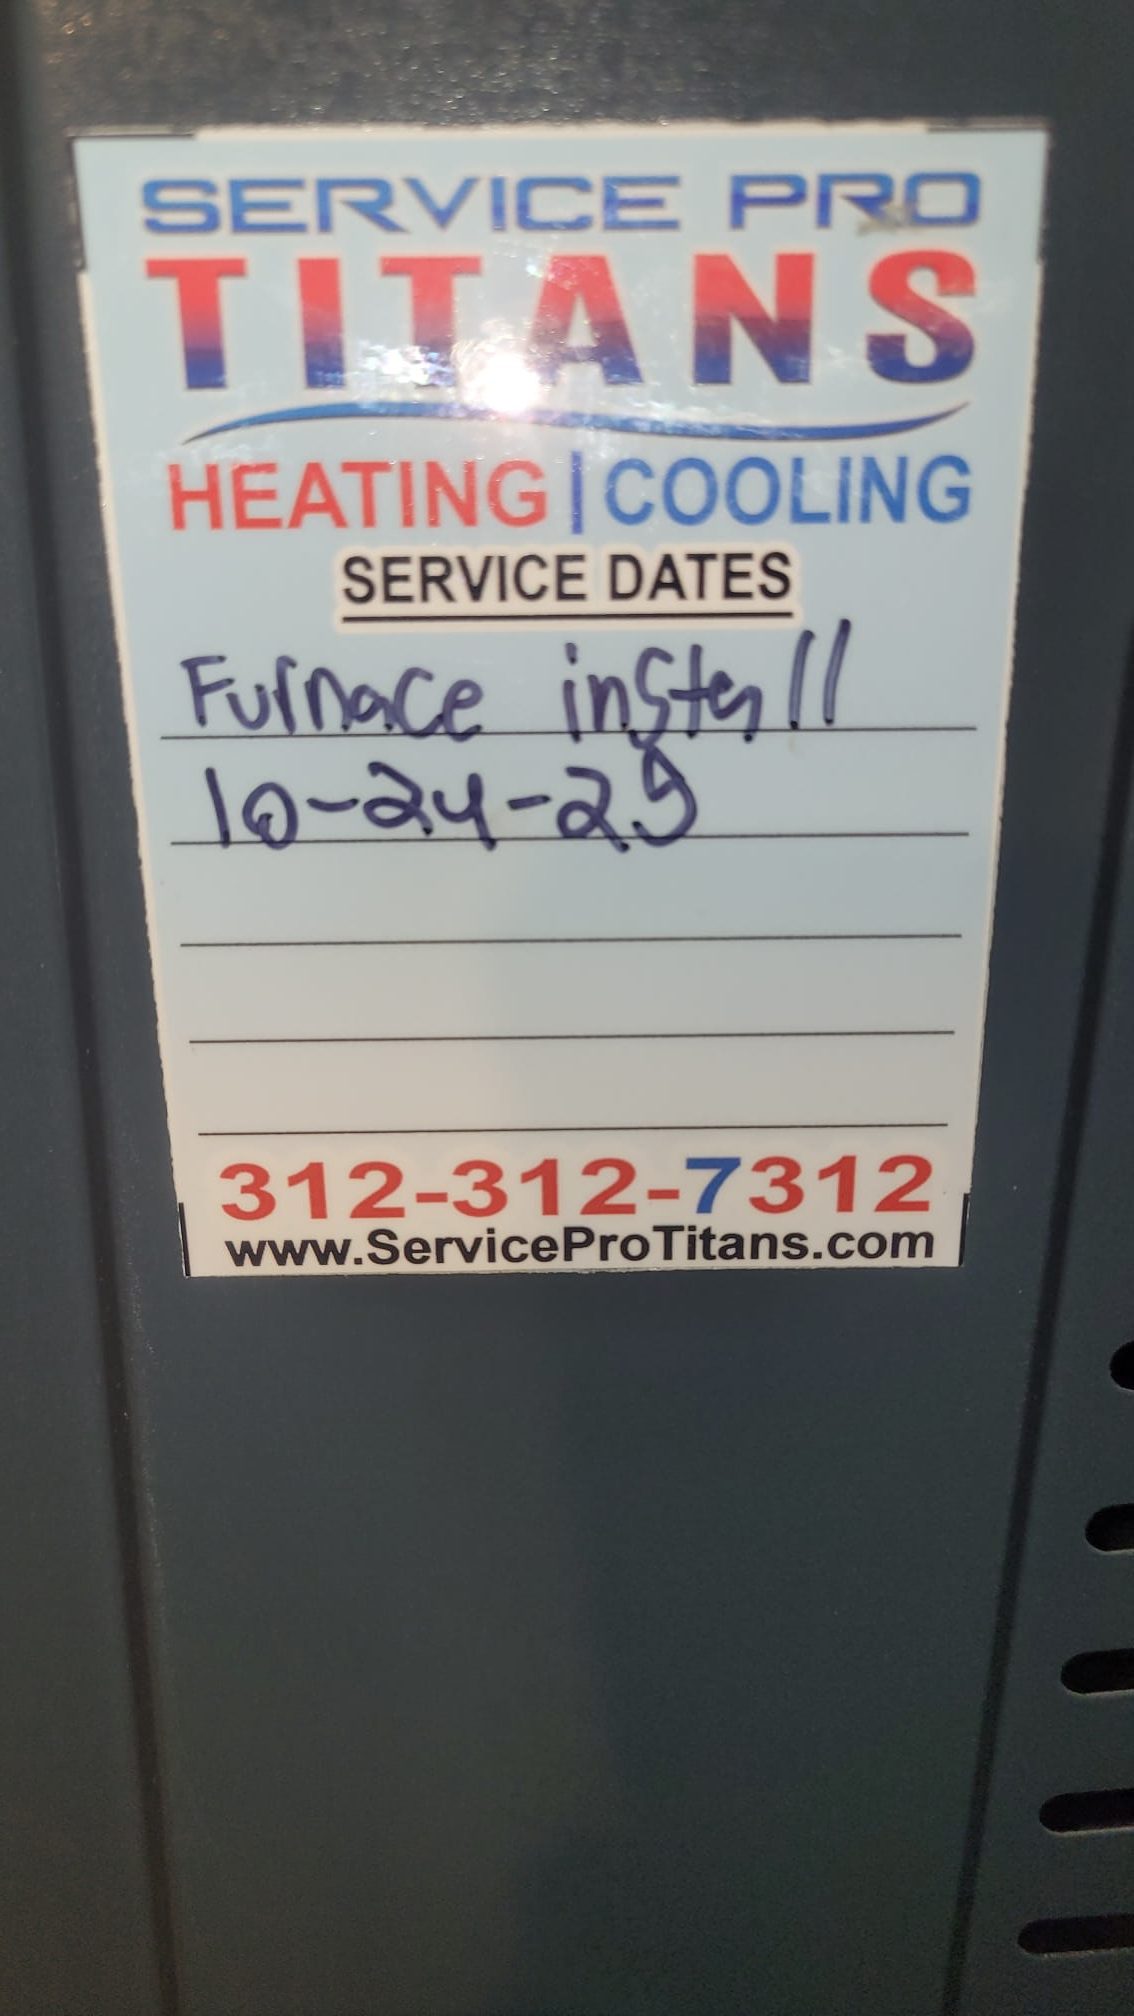 SERVICE PRO
TITANS
HEATING | COOLING
SERVICE DATES
Furnace install
10-24-25
312-312-7312
www.ServiceProTitans.com